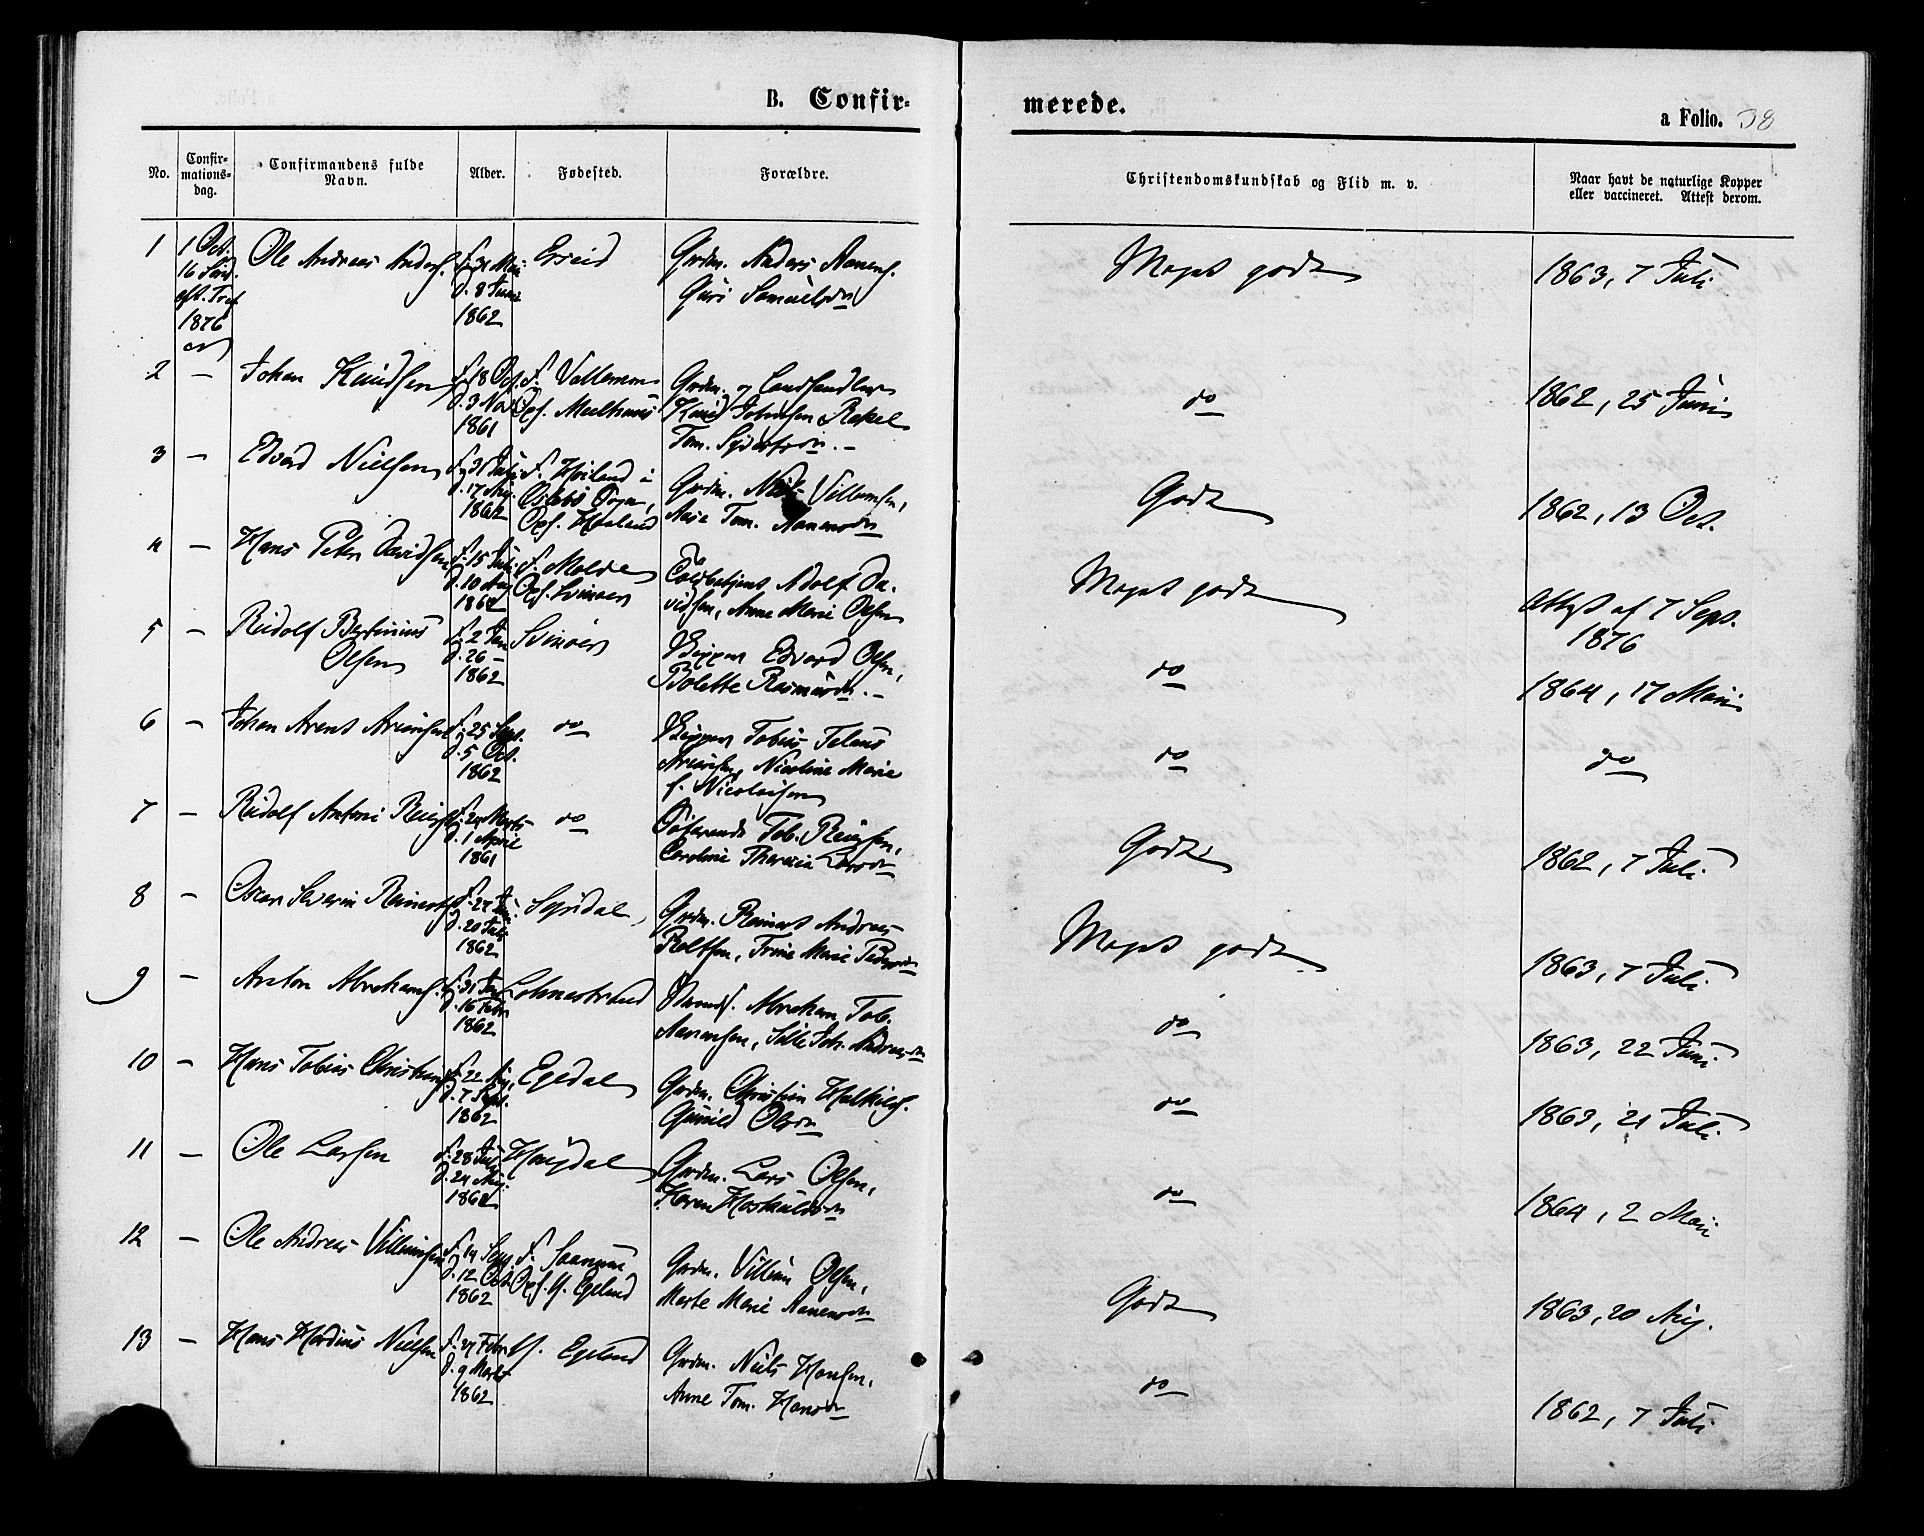 B. Confir-
merede.
a Folio. 38
No.
Confir-
mations-
dag.
Confirmandens fulde
Navn.
Alder.
Fødested.
Forældre.
Christendomskundskab og Flid m. v.
Naar havt de naturlige Kopper
eller vaccineret. Attest derom.
1
1 Oct.
16 Sønd.
eft. Tref
1876
Ole Andreas Anders.
f. 31 Mai
d. 8 Juni
1862
Grdm. Anders Aanens.
Guri Samuelsdn
Meget godt
1863, 7 Juli
2 –
Johan Knudsen
f. 18 Oct.
d. 3 Nov.
1861
F. Vallemm
Opf.
Grdm. og Landhandler
Knud Johnsen & Rakel
Tom. Syvertsdn. –
do
1862, 25 Juni
3 –
Edvard Nielsen
f. 31 Juli
d. 17 Aug.
1862
F. Høiland i
Sogn,
Opf.
Grdm. Niels Villumsen,
Aase Tom. Aanensdn
Godt
1862, 13 Oct.
4 –
Hans Peter Davidsen
f. 15 Juli
d. 10 Aug
1862
F. Molde
Opf. Svinøer
Toldbetjent Adolf Da-
vidsen, Anne Marie Olsen
Meget godt
Attest af 7 Sept.
1876
5 –
Rudolf Bertinius
Olsen
f. 2 Jan
d. 26 –
1862
Svinøer
Skipper Edvard Olsen,
Bolette Rasmusdn. –
do
1864, 17 Mai
6 –
Johan Arent
f. 25 Sept.
d. 5 Oct.
1862
do
Skipper Tobias
Nicoline Marie
f. Nicolaisen
do
do
7 –
Rudolf Antoni
f. 24 Marts
d. 1 April
1861
do
Søfarende Tob.
Caroline Theresia Larsdn
Godt
1862, 7 Juli
8 –
Oscar Severin Reinerts
f. 27
d. 20 Juli
1862
Grdm. Reinert Andreas
Roltsen, Trine Marie Pedersdn
Meget godt
1863, 7 Juli
9 –
Anton Abrahams.
f. 31 Jan
d. 16 Febr
1862
Lohnestrand
Abraham Tob.
Aanensen, Sille Joh. Andreasdn
do
1863, 22 Juni
10 –
Hans Tobias Christians
f. 22 Aug.
d. 7 Sept.
1862
Egedal
Grdm. Christian
Gunild Olsdn
do
1863, 21 Juli
11 –
Ole Larsen
f. 28 Juli
d. 24 Aug.
1862
Haugdal
Grdm. Lars Olsen,
Karen
do
1864, 2 Mai
12 –
Ole Andreas Villumsen
f. 14 Sept
d. 12 Oct.
1862
F. Saanum
Opf. Y. Egeland
Grdm. Villum Olsen,
Marte Marie Aanensdn
Godt
1863, 20 Aug.
13 –
Hans Nielsen
f. 27 Febr
d. 9 Marts
1862
Y. Egeland
Grdm. Niels Hansen,
Anne Tom. Hansdn
do
1862, 7 Juli